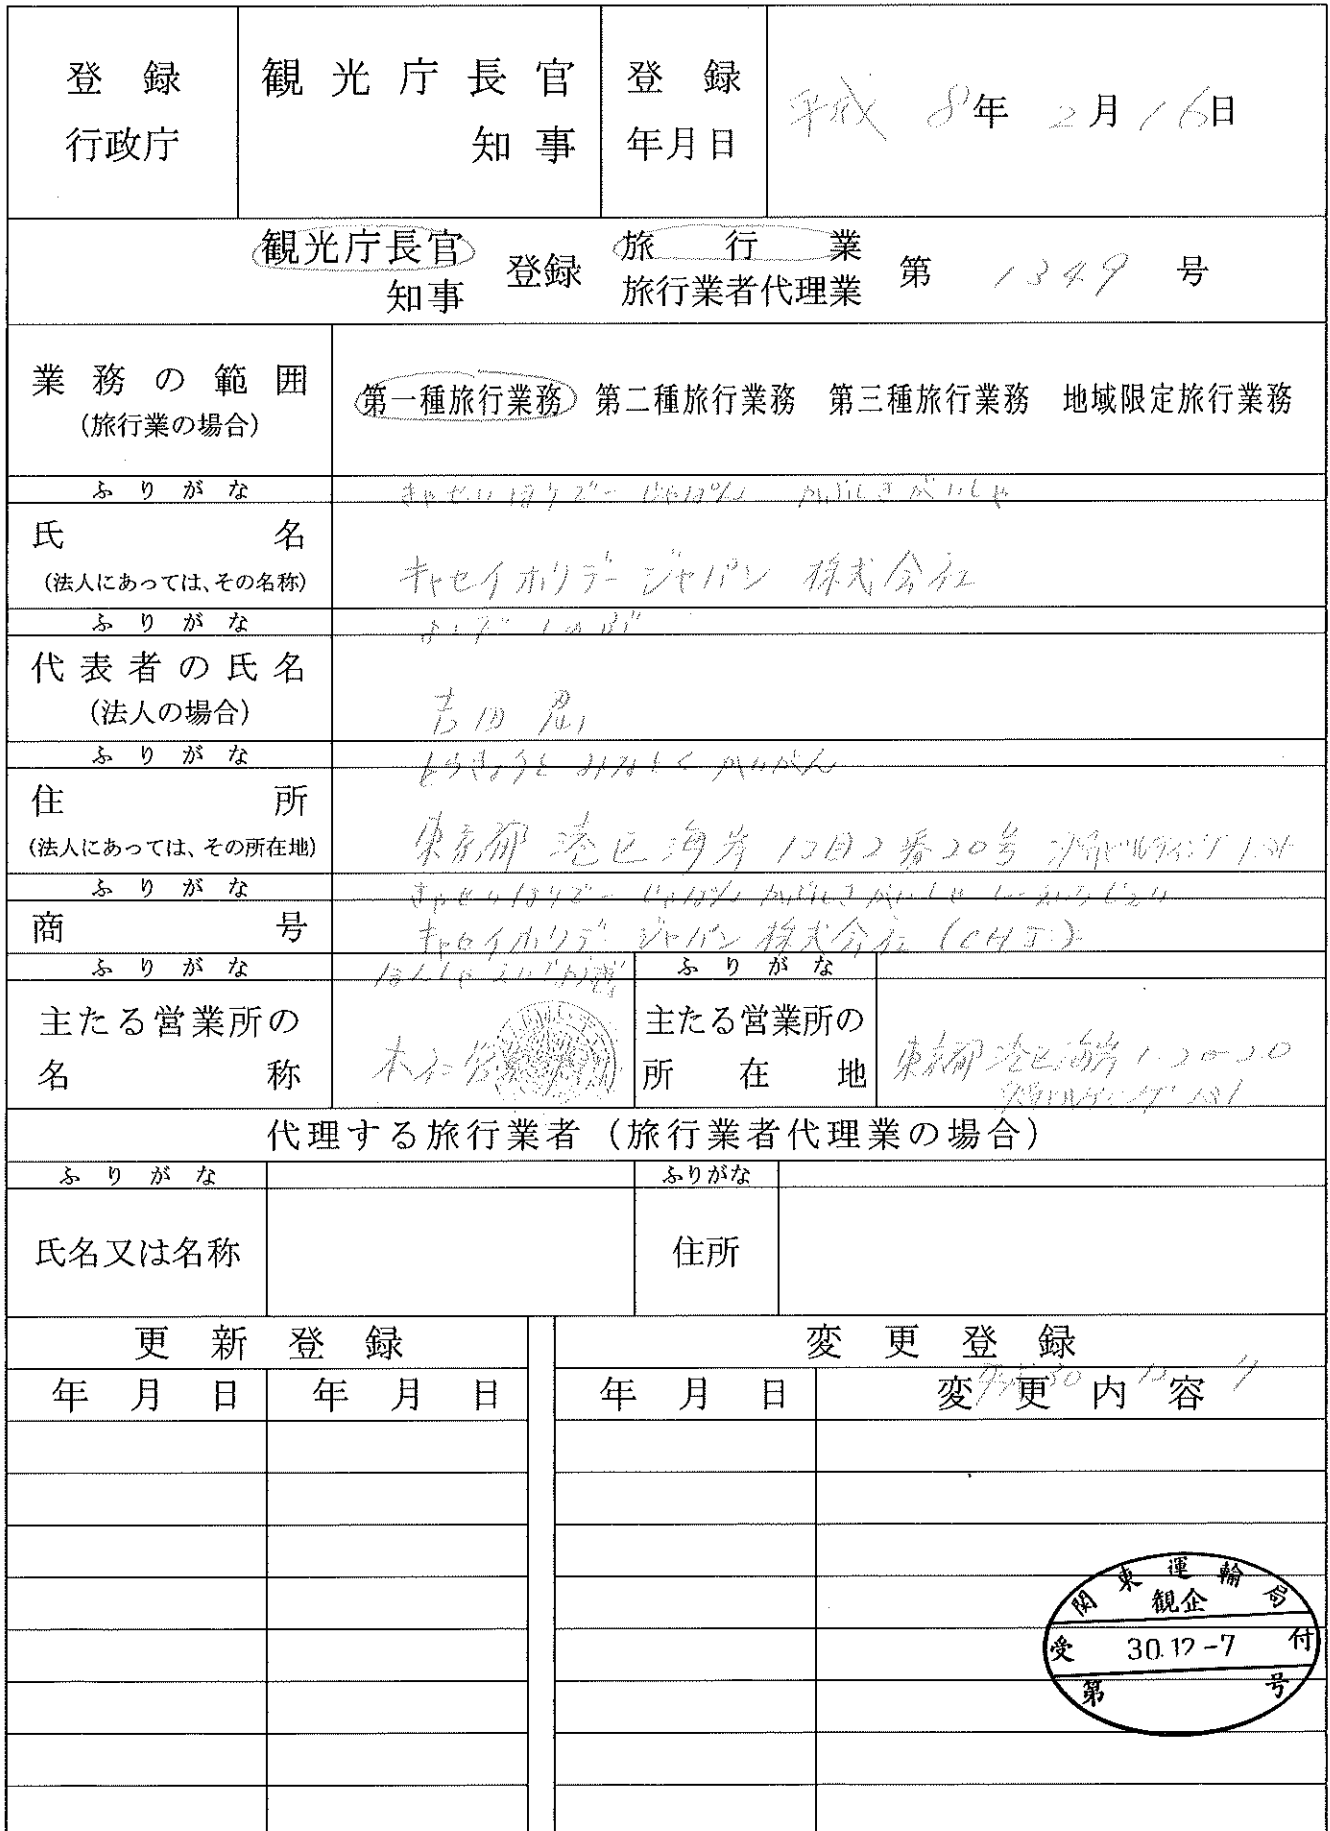 登録行政庁 観光庁長官 知事 登録年月日 平成 8年 2月 16日
観光庁長官 知事 登録 旅行業 旅行業者代理業 第 1349 号
業務の範囲 (旅行業の場合) 第一種旅行業務 第二種旅行業務 第三種旅行業務 地域限定旅行業務
ふりがな きゃせいほりでー じゃぱん かぶしきがいしゃ
氏名 (法人にあっては、その名称) キャセイホリデージャパン 株式会社
ふりがな よしだ しのぶ
代表者の氏名 (法人の場合) 吉田 忍
ふりがな とうきょうと みなとく かいがん
住所 (法人にあっては、その所在地) 東京都 港区 海岸 1丁目2番20号
ふりがな きゃせいほりでー じゃぱん かぶしきがいしゃ しーえいちじぇい
商号 キャセイホリデージャパン 株式会社 (CHJ)
ふりがな ふりがな
主たる営業所の名称 本社営業所 主たる営業所の所在地 東京都港区海岸1-2-20
代理する旅行業者 (旅行業者代理業の場合)
ふりがな ふりがな
氏名又は名称 住所
更新登録 変更登録
年月日 年月日 年月日 変更内容
関東運輸局
観企
受 30.12-7 付
第 号